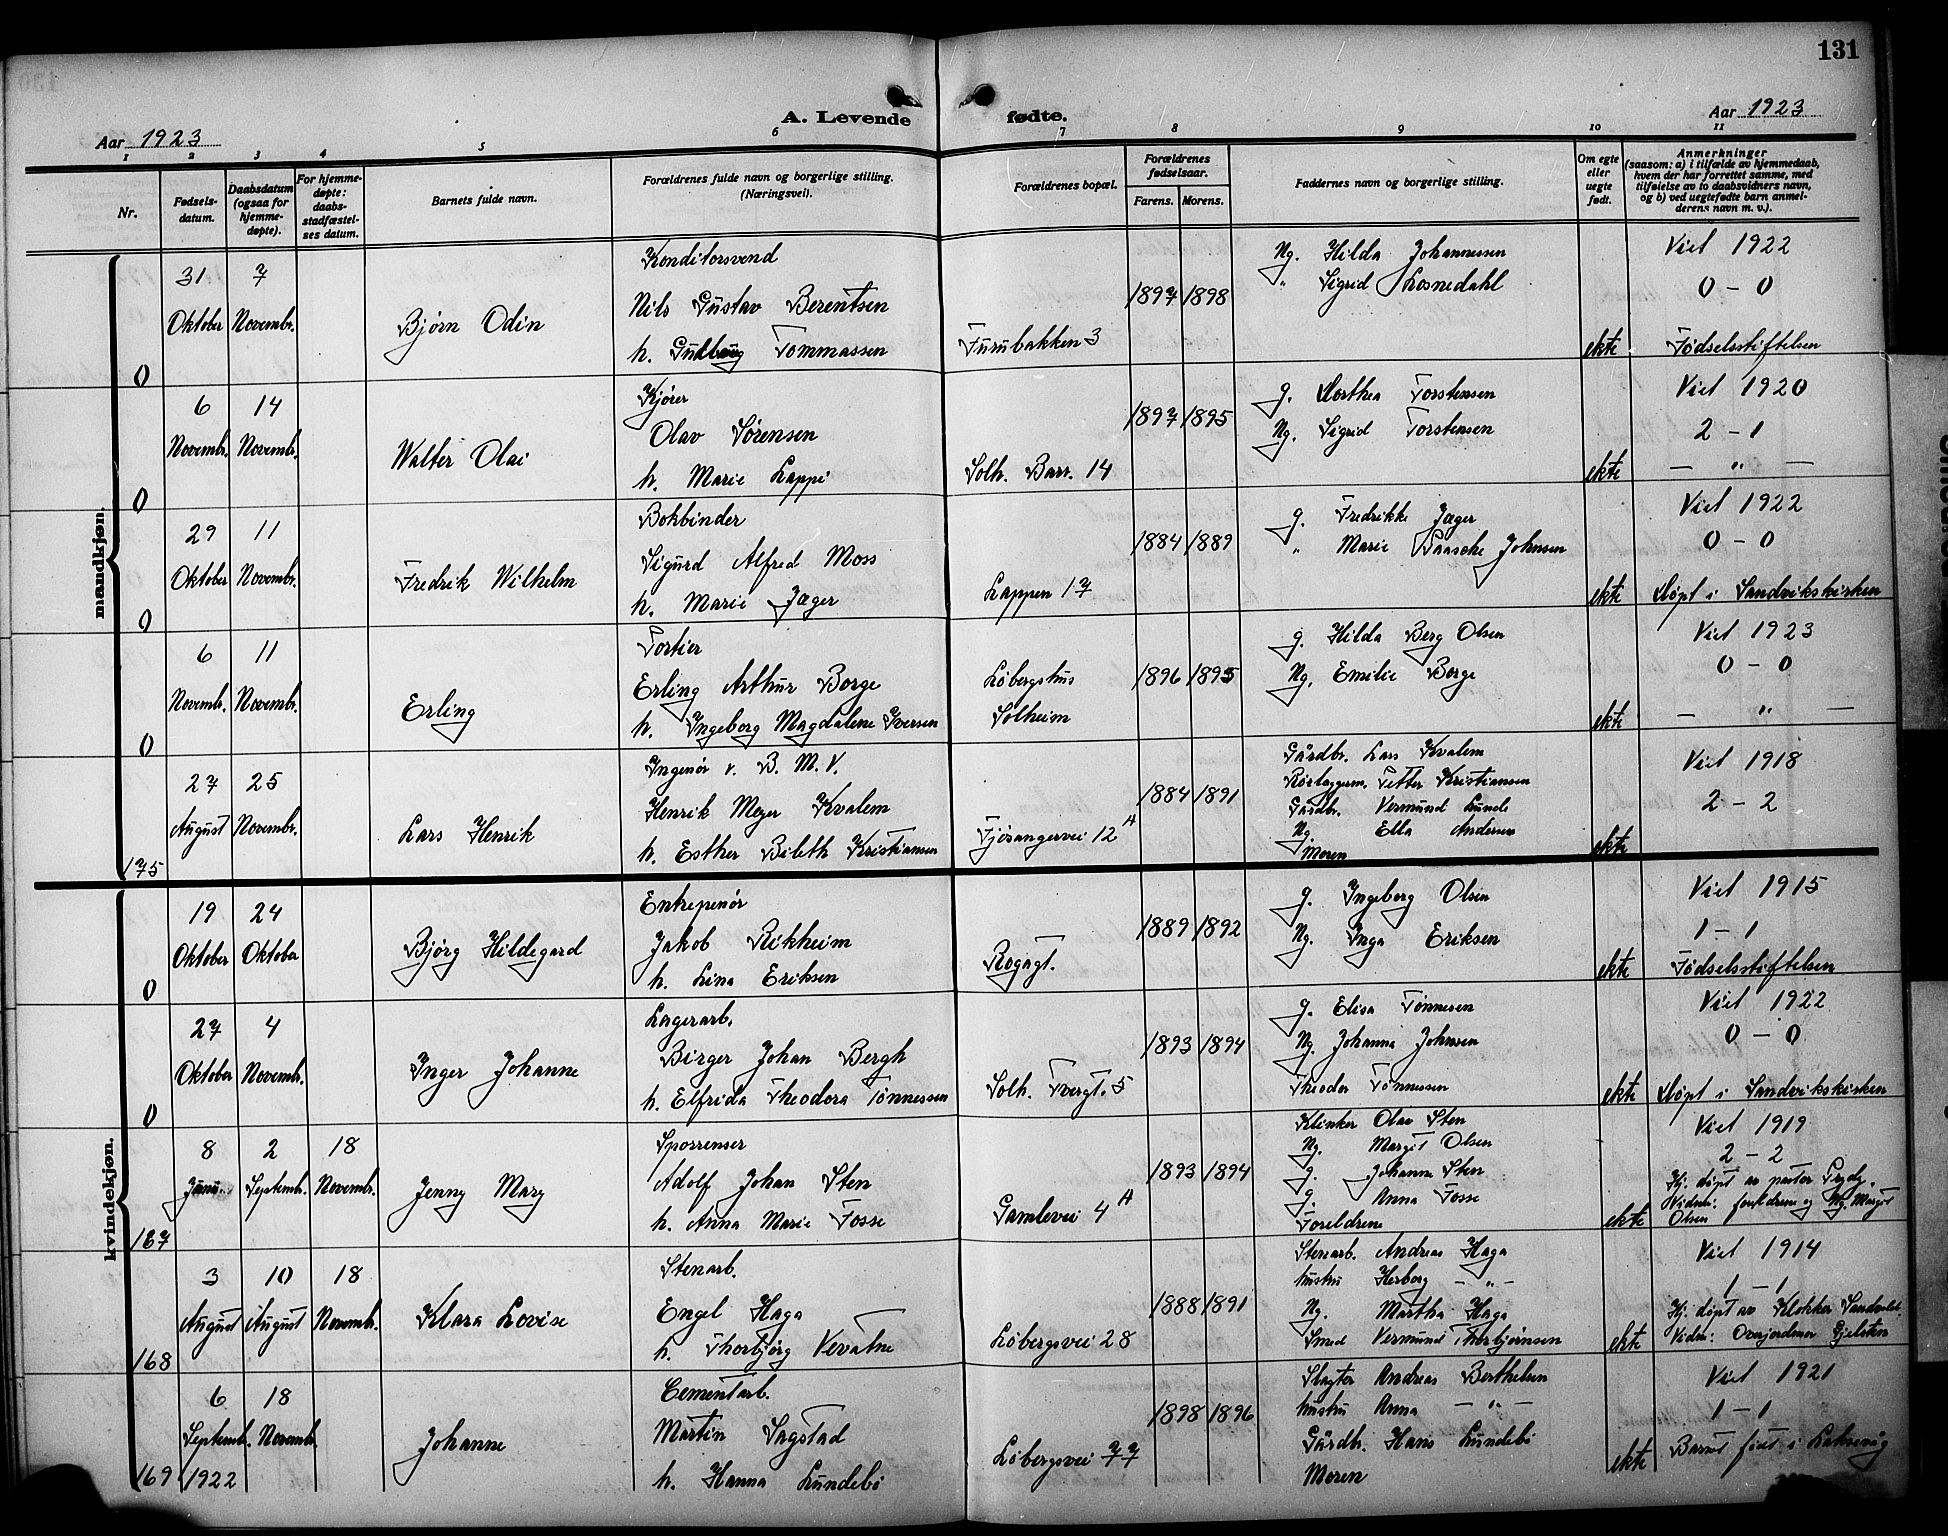 131
A. Levende fødte.
Aar 1923
Aar 1923
1 2 3 4 5 6 7 8 9 10 11
Nr.
Fødsels-
datum.
Daabsdatum
(ogsaa for
hjemme-
døpte).
For hjemme-
døpte:
daabs-
stadfæstel-
ses datum.
Barnets fulde navn.
Forældrenes fulde navn og borgerlige stilling.
(Næringsvei).
Forældrenes bopæl.
Forældrenes
fødselsaar.
Farens. Morens.
Faddernes navn og borgerlige stilling.
Om egte
eller
uegte
født.
Anmerkninger
(saasom: a) i tilfælde av hjemmedaab,
hvem der har forrettet samme, med
tilføielse av to daabsvidners navn,
og b) ved uegtefødte barn anmel-
derens navn m. v.).
mandkjøn.
0
31
Oktober
7
Novembr.
Bjørn Odin
Konditorsvend
Nils Gustav Berentsen
h. Gudborg Tommassen
Furubakken 3
1897 1898
Ng. Hilda Johannessen
" Sigrid Losnedahl
ekte
Viet 1922
0 - 0
Fødselsstiftelsen
0
6
Novembr.
14
Novembr.
Walter Olai
Kjører
Olav Sørensen
h. Marie Lappi
Solh. Barr. 14
1897 1895
g. Dorthea Torstensen
Ng. Sigrid Torstensen
ekte
Viet 1920
2 - 1
— " —
0
29
Oktober
11
Novembr.
Fredrik Wilhelm
Bokbinder
Sigurd Alfred Moss
h. Marie Jæger
Lappen 17
1884 1889
g. Fredrikke Jæger
" Marie Paasche Johnsen
ekte
Viet 1922
0 - 0
Døpt i Sandvikskirken
0
6
Novembr.
11
Novembr.
Erling
Portier
Erling Arthur Borge
h. Ingeborg Magdalene Iversen
Løbergshus
Solheim
1896 1895
g. Hilda Berg Olsen
Ng. Emilie Borge
ekte
Viet 1923
0 - 0
— " —
175
27
August
25
Novembr.
Lars Henrik
Ingenør v. B. M. V.
Henrik Meyer Kvalem
h. Esther Bileth Kristiansen
Fjøsangervei 12 A
1884 1891
Gårdbr. Lars Kvalem
Rørlæggerm. Petter Kristiansen
Gårdbr. Vermund Lunde
Ng. Ella Andersen
Moren
ekte
Viet 1918
2 - 2
kvindekjøn.
0
19
Oktober
24
Oktober
Bjørg Hildegard
Entrepenør
Jakob Rikheim
h. Lina Eriksen
Rogagt.
1889 1892
g. Ingeborg Olsen
Ng. Inga Eriksen
ekte
Viet 1915
1 - 1
Fødselsstiftelsen
0
27
Oktober
4
Novembr.
Inger Johanne
Lagerarb.
Birger Johan Bergh
h. Elfrida Theodora Tønnessen
Solh. Tvergt. 5
1893 1894
g. Elisa Tønnesen
Ng. Johanna Johnsen
Theodor Tønnessen
ekte
Viet 1922
0 - 0
Døpt i Sandvikskirken
167
8
2
Septemb.
18
Novemb.
Jenny Mary
Sporrenser
Adolf Johan Sten
h. Anna Marie Fosse
Gamlevei 4 A
1893 1894
Klinker Olav Sten
Ng. Margit Olsen
g. Johanne Sten
g. Anna Fosse
Foreldrene
ekte
Viet 1919
2 - 2
Hj. døpt av pastor
Vidner: foreldrene og Ng. Margit
Olsen
168
3
August
10
August
18
Novemb.
Klara Lovise
Stenarb.
Engel Haga
h. Thorbjørg Vevatne
Løbergsvei 28
1888 1891
Stenarb. Andreas Haga
hustru Herborg — " —
Ng. Martha Haga
Smed Vermund Thorbjørnsen
ekte
Viet 1914
1 - 1
Hj. døpt av Klokker
Vidner: Overjordmor Gjelsten
169
6
Septemb.
1922
18
Novemb.
Johanne
Cementarb.
Martin Sagstad
h. Hanna Lundebø
Løbergsvei 77
1898 1896
Slagter Andreas Berthelsen
hustru Anna — " —
Gårdbr. Hans Lundebø
Moren
ekte
Viet 1921
1 - 1
Barnet født i Laksevåg